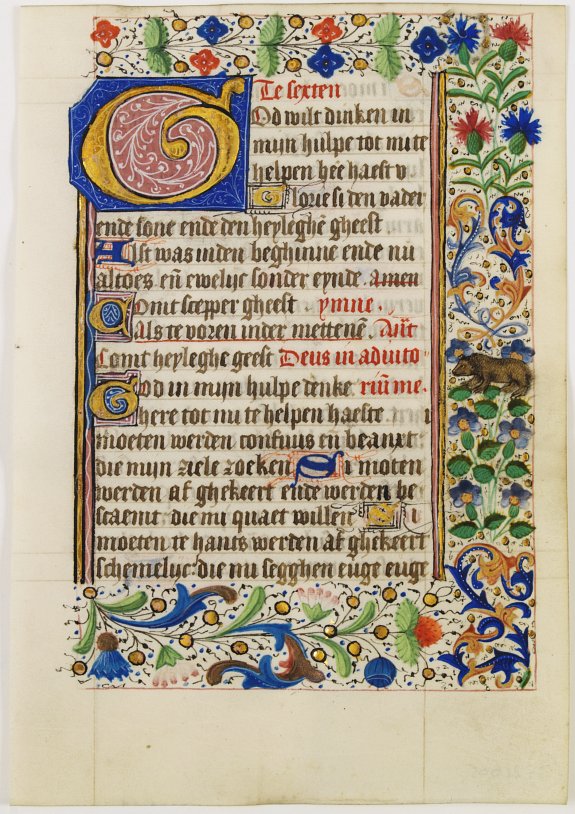 Te sexten
God wilt dinken in
mijn hulpe tot mi te
helpen hee haest v
Glorie si den vader
ende sone ende den heyleghē gheest
Alst was inden beghinne ende nu
altoes eñ ewelijc sonder eynde. amen
Comt scepper gheest. ymne.
Als te voren inder mettenē. Añt
Comt heyleghe geest Deus in adiuto-
God in mijn hulpe dēke. riū me.
here tot mi te helpen haeste. 
moeten werden confuus eñ beanxt:
die mijn ziele zoeken Si moten
werden af ghekeert ende werden be
scaemt: die mi quaet willen Si
moeten te hants werden af ghekeert
schemelijc: die mi segghen euge euge